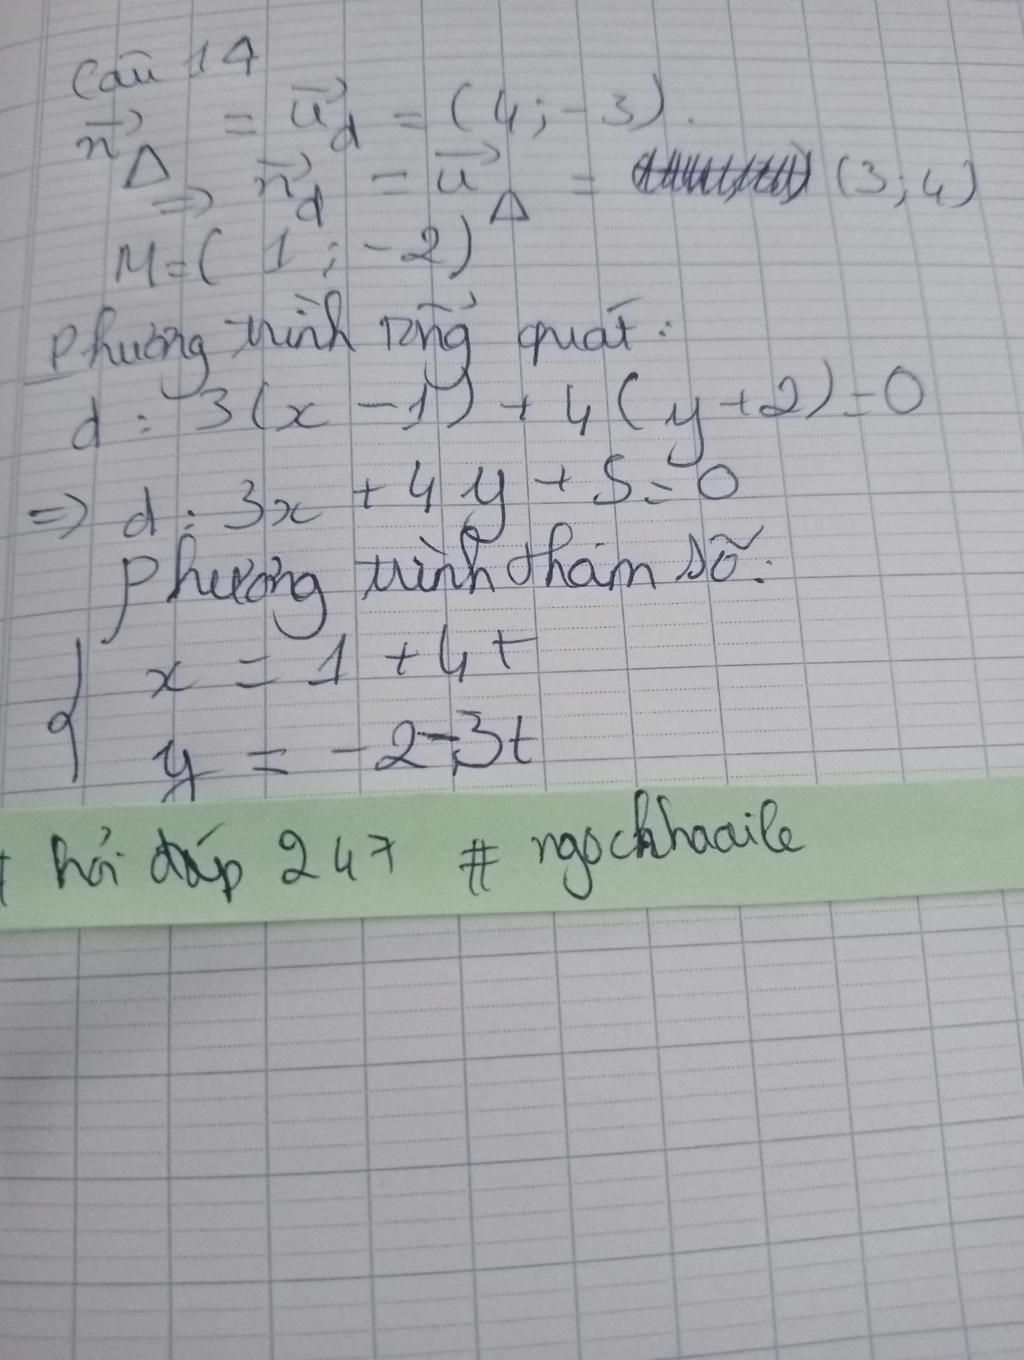 Câu 14
n⃗_Δ = u⃗_d = (4; -3).
=> n⃗_d = u⃗_Δ = (3; 4)
M = (1; -2)
Phương trình tổng quát:
d: 3(x - 1) + 4(y + 2) = 0
=> d: 3x + 4y + 5 = 0
Phương trình tham số:
{ x = 1 + 4t
y = -2 - 3t
hỏi đáp 247 # ngockhaaile